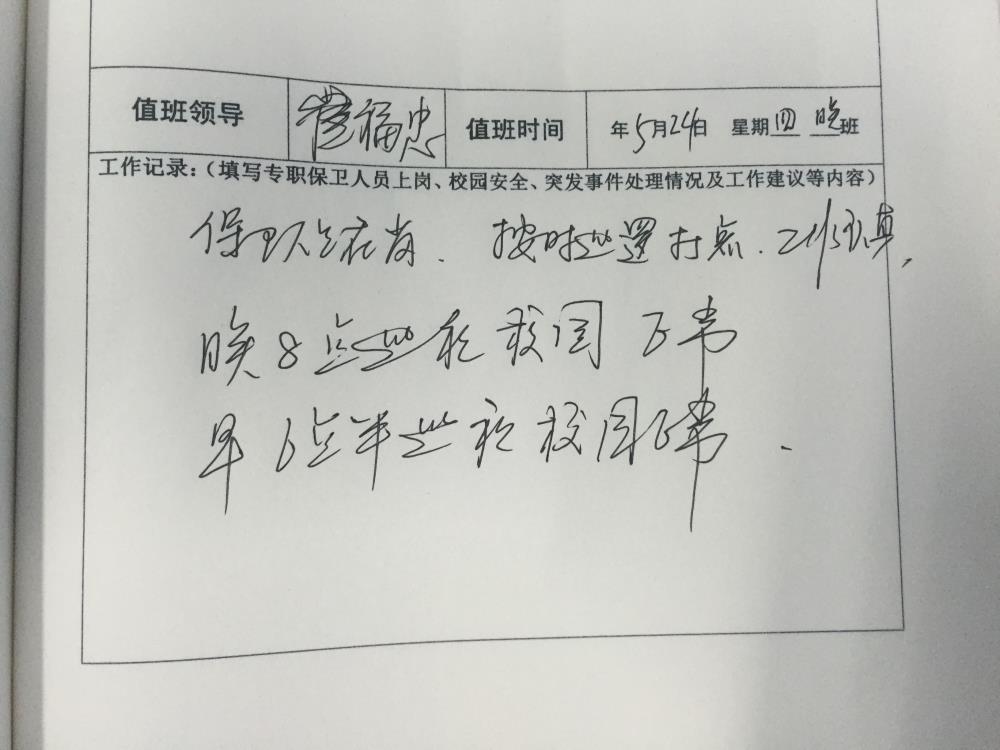 值班领导 福忠 值班时间 年5月24日 星期四 晚班
工作记录：（填写专职保卫人员上岗、校园安全、突发事件处理情况及工作建议等内容）
保卫人员在岗. 按时巡逻打点. 工作认真,
晚8点巡视校园 正常
早6点半巡视校园正常.